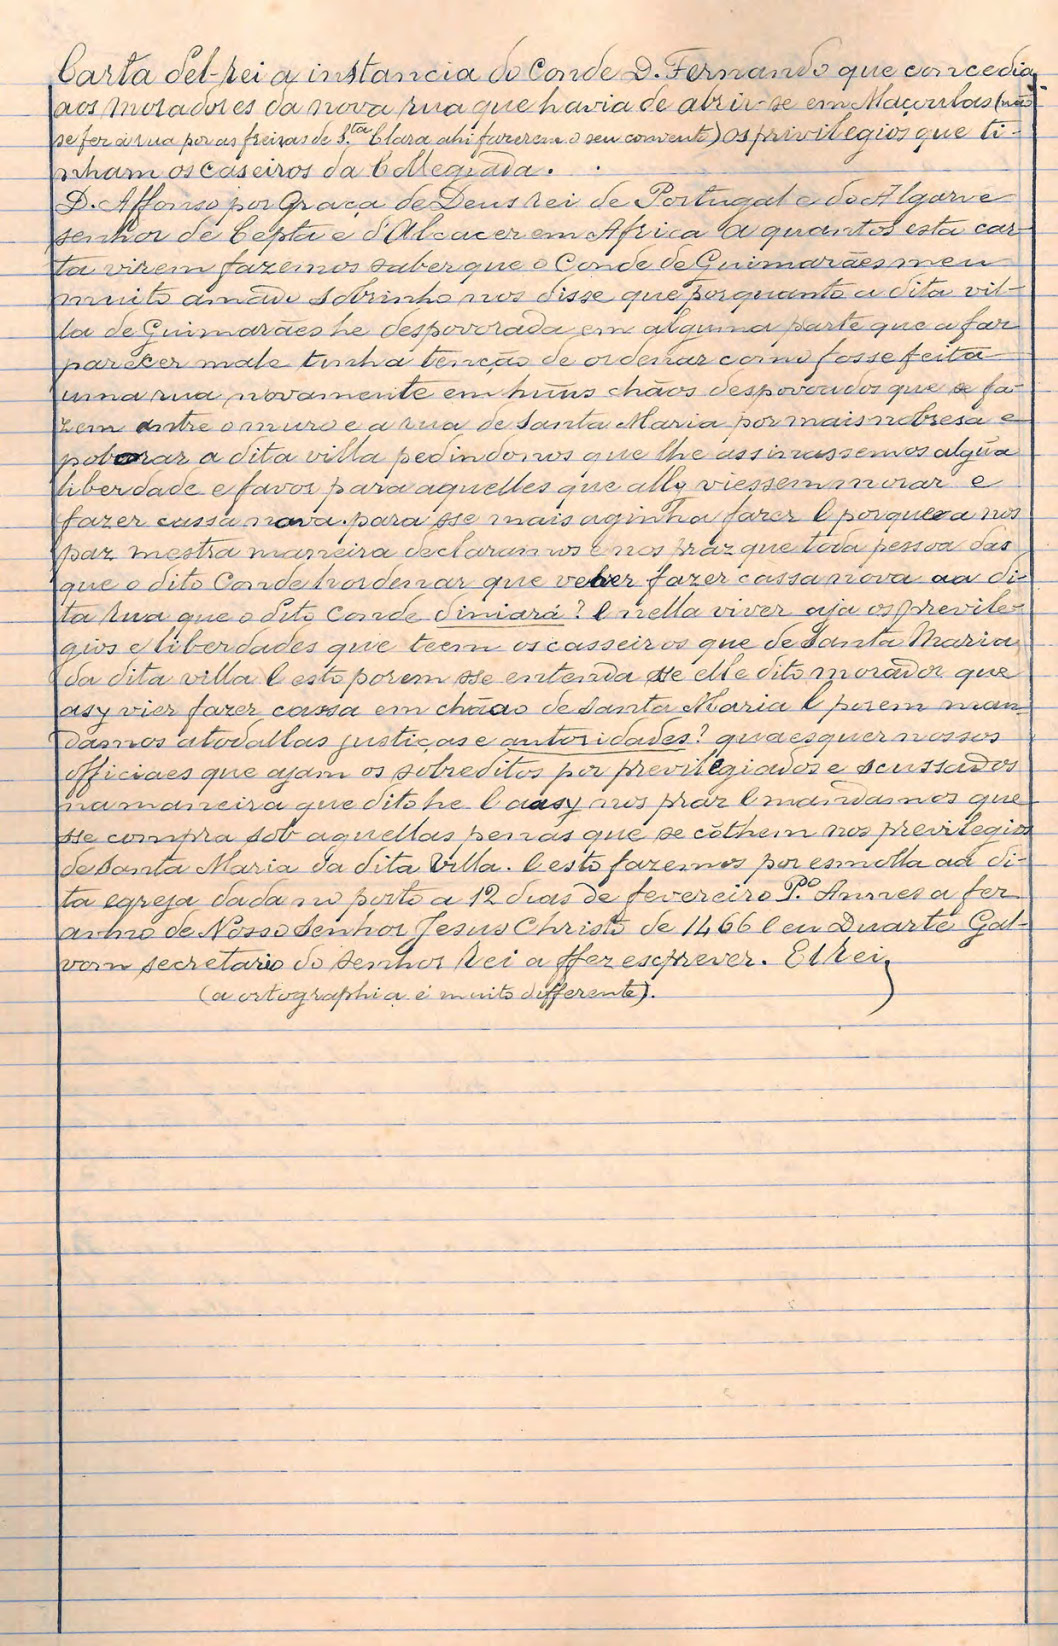 Carta del-rei a instancia do Conde D. Fernando que concedia
aos moradores da nova rua que havia de abrir-se em Maçoulas (não
se fez a rua por as freiras de S.ta Clara ahi fazerem o seu convento) os privilegios que ti-
nham os caseiros da Collegiada.
D. Affonso por Graça de Deus rei de Portugal e do Algarve
senhor de Cepta e d'Alcacer em Africa a quantos esta car-
ta virem fazemos saber que o Conde de Guimarães meu
muito amado sobrinho nos disse que porquanto a dita vil-
la de Guimarães he despovorada em alguma parte que a faz
parecer male tinha tenção de ordenar como fosse feita
uma rua novamente em huns chãos despovoados que se fa-
zem entre o muro e a rua de Santa Maria por mais nobresa e
poborar a dita villa pedindonos que lhe assinassemos algũa
liberdade e favor para aquelles que ally viessem morar e
fazer cassa nova. para sse mais aginha fazer E porque a nos
paz mestra maneira declaramos e nos praz que toda pessoa das
que o dito Conde hordenar que veher fazer cassa nova aa di-
ta rua que o dito Conde diniará? E nella viver aja os previle-
gios e liberdades que teem os casseiros que de Santa Maria
da dita villa E esto porem sse entenda sse elle dito morador que
asy vier fazer cassa em chãao de Santa Maria E porem man-
damos atodallas justiças e autoridades? quaesquer nossos
officiaes que ajam os sobreditos por previlegiados e scussados
na maneira que dito he E aasy nos praz E mandamos que
sse compra sob aquellas penas que se cõthem nos previlegios
de Santa Maria da dita Villa. E esto fazemos por esmolla aa di-
ta egreja dada no porto a 12 dias de fevereiro P.o Annes a fez
anno de Nosso Senhor Jesus Christo de 1466 E eu Duarte Gal-
vom secretario do Senhor Rei a ffez escprever. El Rei
(a ortographia é muito differente).